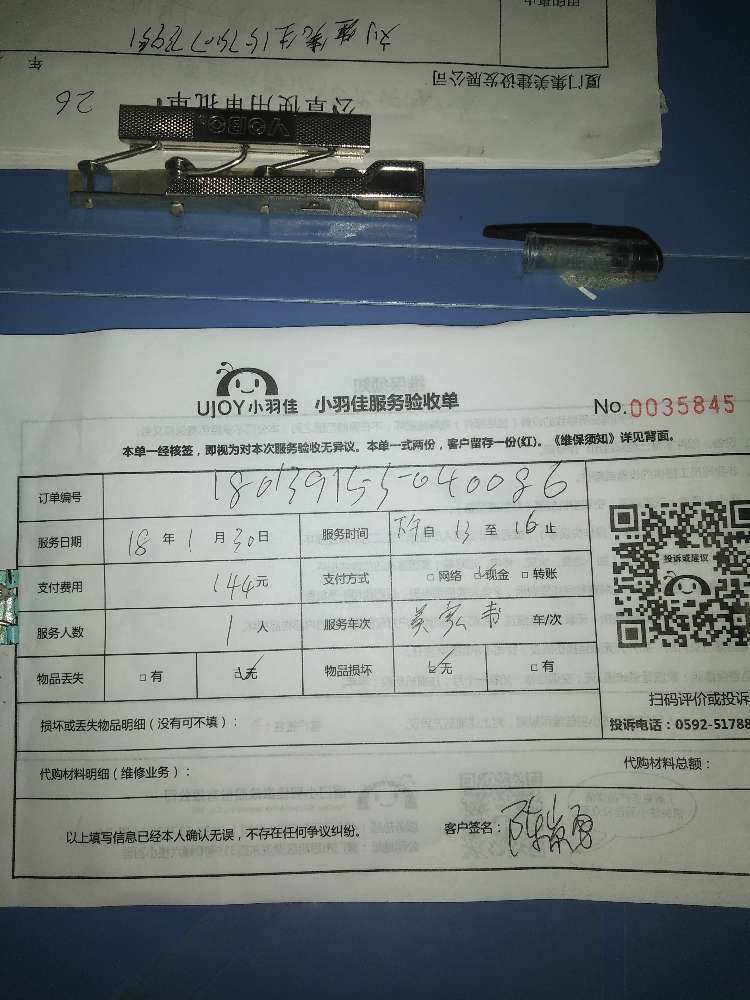 厦门集美建设发展公司
公章使用审批单
年
26
VOBO
UJOY小羽佳 小羽佳服务验收单
No.0035845
本单一经核签，即视为对本次服务验收无异议。本单一式两份，客户留存一份(红)。《维保须知》详见背面。
订单编号
服务日期 18 年 1 月 30 日 服务时间 自 13 至 16 止
支付费用 144元 支付方式 □网络 ☑现金 □转账
服务人数 1 人 服务车次 车/次
物品丢失 □有 ☑无 物品损坏 ☑无 □有
投诉或建议
扫码评价或投诉
损坏或丢失物品明细（没有可不填）：
投诉电话：0592-51788
代购材料明细（维修业务）： 代购材料总额：
以上填写信息已经本人确认无误，不存在任何争议纠纷。 客户签名：